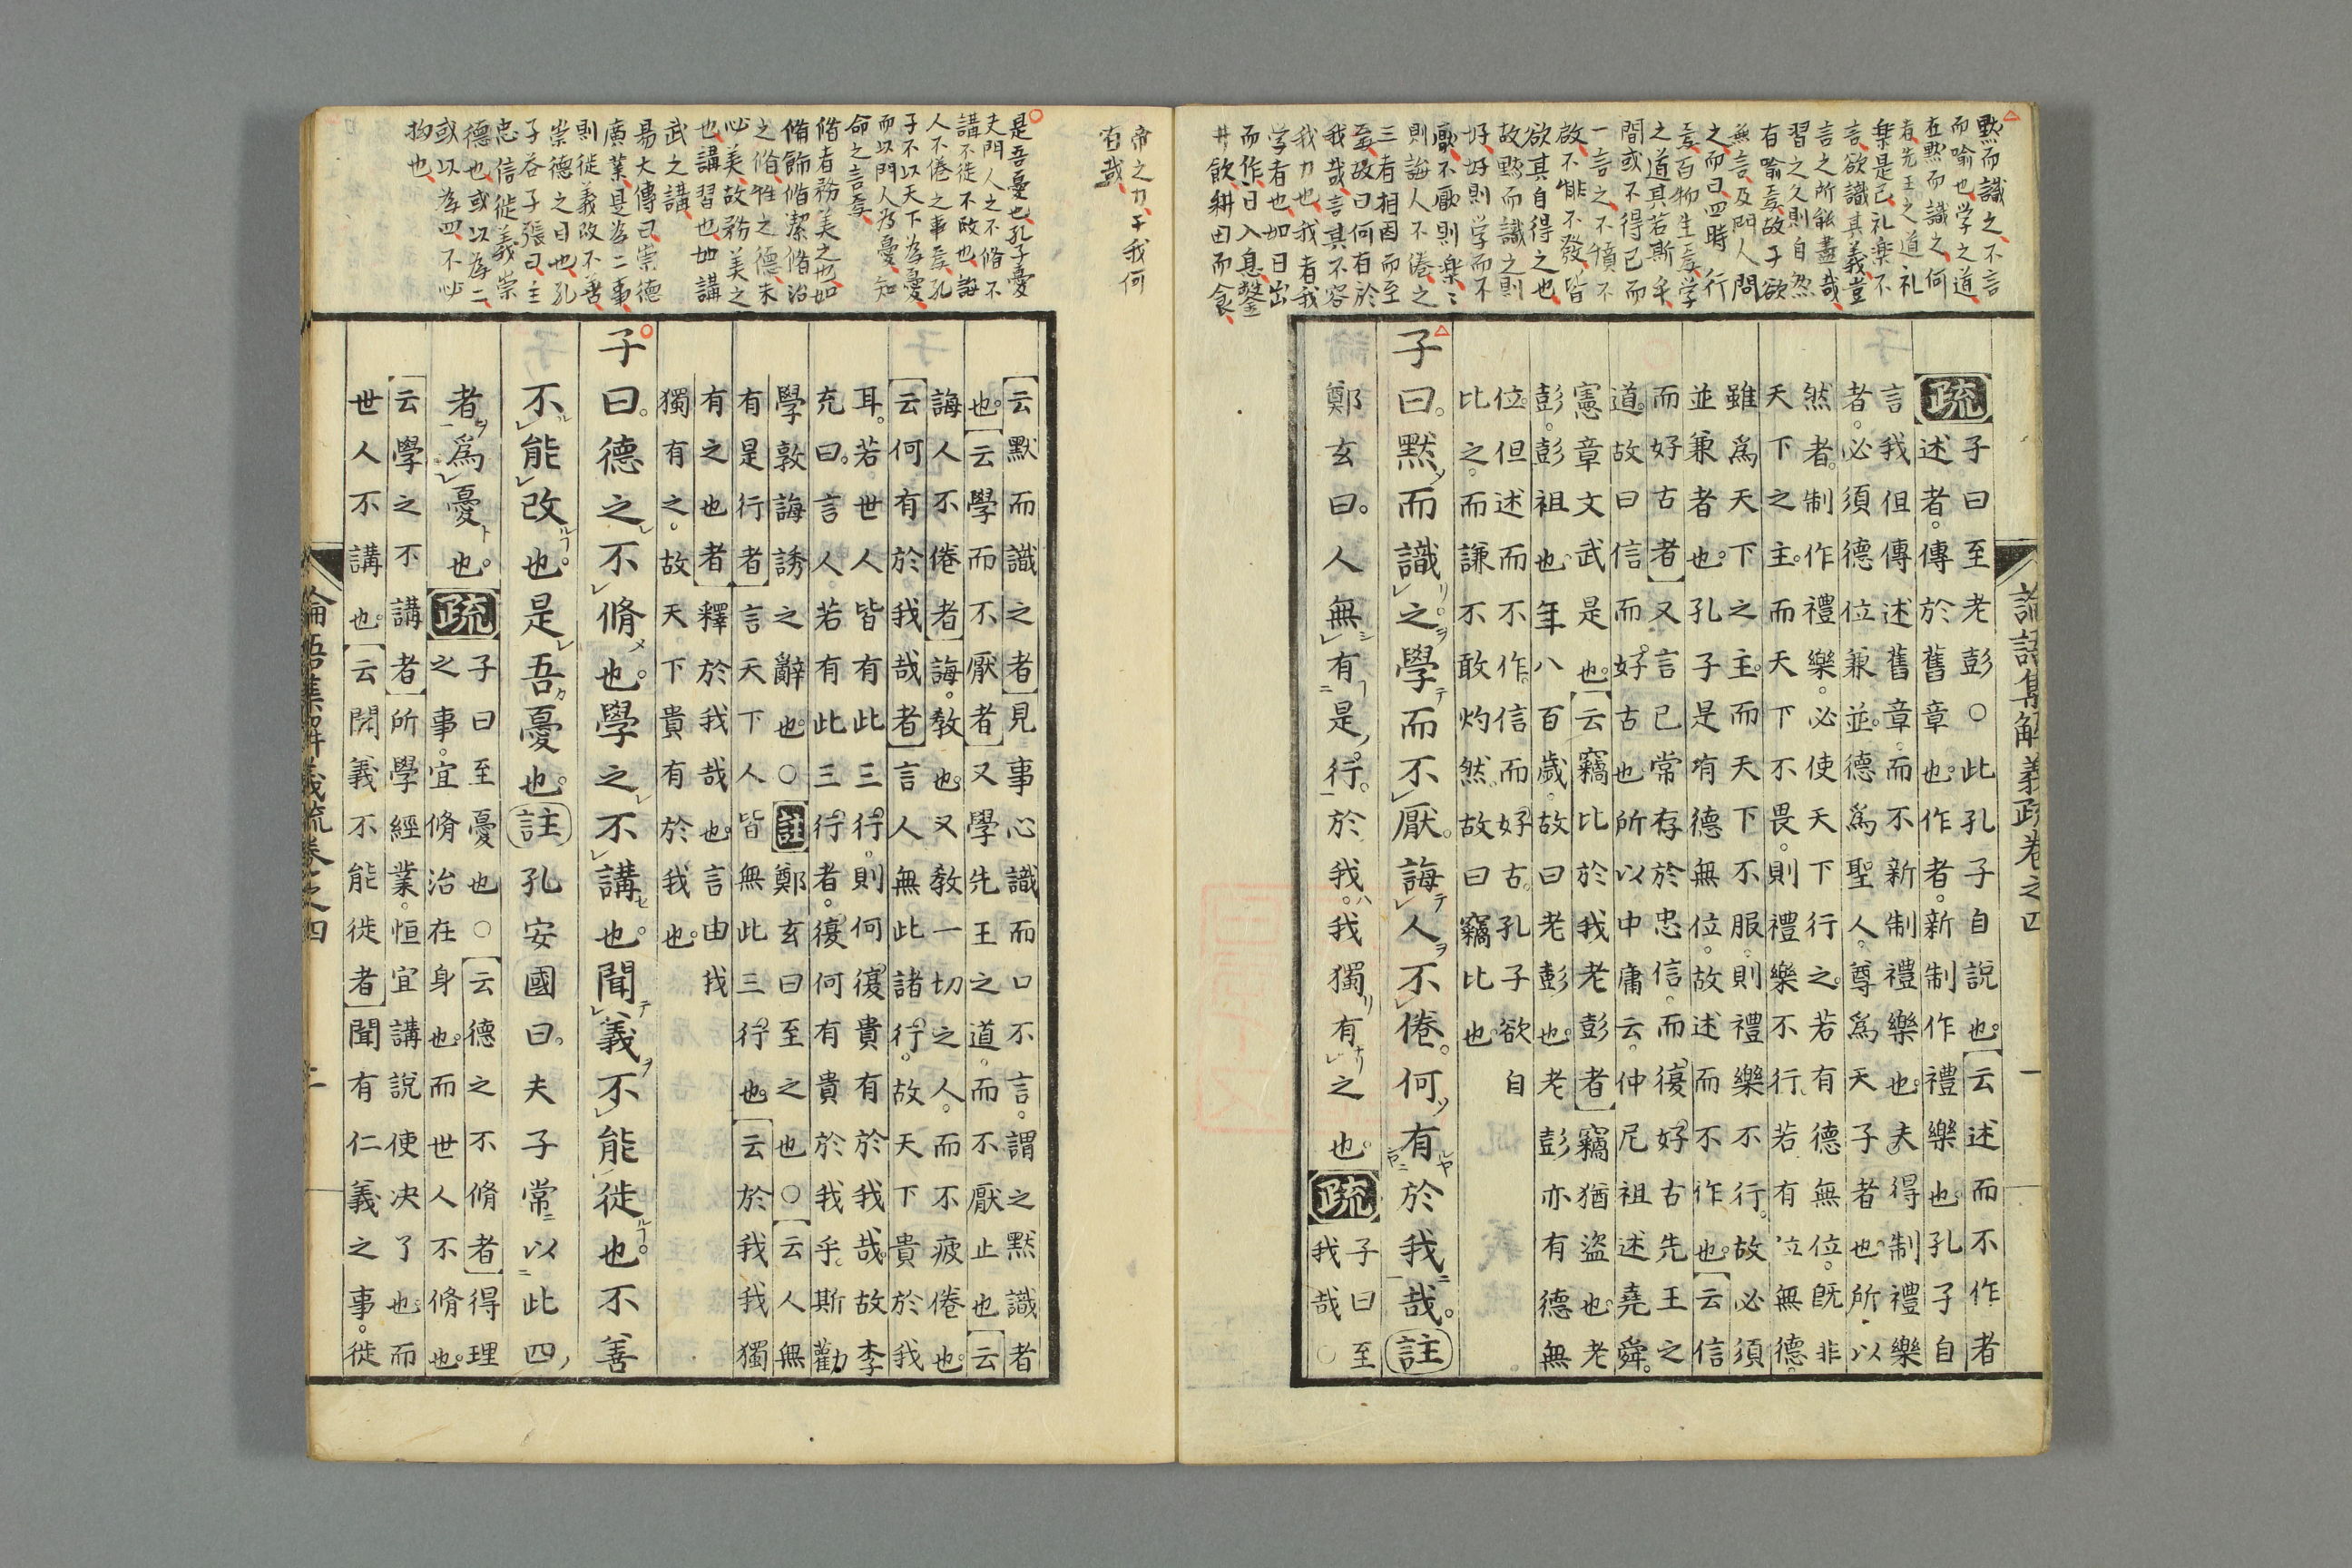 黙而識之不言
而喻也学之道
在黙而識之何
者先王之道礼
樂是已礼樂不
言欲識其義豈
言之所能盡哉
習之久則自然
有喻焉故子欲
無言及門人問
之而曰四時行
焉百物生焉学
之道其若斯乎
間或不得已而
一言之不憤不
啟不悱不發皆
欲其自得之也
故黙而識之則
好好則学而不
厭不厭則樂々
則誨人不倦之
三者相因而至
焉故曰何有於
我哉言其不容
我力也我者我
学者也如日出
而作日入息鑿
井飲耕田而食
帝之力于我何
有哉
論語集解義疏卷之四
一
疏
子曰至老彭○此孔子自說也。云述而不作者
述者。傳於舊章也。作者。新制作禮樂也。孔子自
言我但傳述舊章。而不新制禮樂也。夫得制禮樂
者。必須德位兼並。德爲聖人。尊爲天子者也。所以
然者。制作禮樂。必使天下行之。若有德無位。旣非
天下之主。而天下不畏。則禮樂不行。若有位無德。
雖爲天下之主。而天下不服。則禮樂不行。故必須
並兼者也。孔子是有德無位。故述而不作也。云信
而好古者又言己常存於忠信。而復好古先王之
道。故曰信而好古也。所以中庸云。仲尼祖述堯舜。
憲章文武是也。云竊比於我老彭者竊猶盜也。老
彭。彭祖也。年八百歲。故曰老彭也。老彭亦有德無
位。但述而不作。信而好古。孔子欲自
比之。而謙不敢灼然。故曰竊比也。
子曰。黙而識之。學而不厭。誨人不倦。何有於我哉。註
鄭玄曰。人無有是行。於我。我獨有之也。疏
子曰至
我哉○
是吾憂也孔子憂
夫門人之不脩不
講不徙不改也誨
人不倦之事焉孔
子不以天下為憂
而以門人為憂知
命之言焉
脩者務美之也如
脩飾脩潔脩治
之脩性之德未
必美故務美之
也講習也如講
武之講
易大傳曰崇德
廣業是為二事
則徙義改不善
崇德之日也孔
子荅子張曰主
忠信徙義崇
德也或以為二
或以為四不必
拘也
云默而識之者見事心識而口不言。謂之默識者
也。云學而不厭者又學先王之道。而不厭止也云
誨人不倦者誨。教也。又教一切之人。而不疲倦也。
云何有於我哉者言人無此諸行。故天下貴於我
耳。若世人皆有此三行。則何復貴有於我哉。故李
充曰。言人若有此三行者。復何有貴於我乎。斯勸
學敦誨誘之辭也。○註鄭玄曰至之也○云人無
有是行者言天下人皆無此三行也。云於我我獨
有之也者釋於我哉也。言由我
獨有之。故天下貴有於我也。
子曰。德之不脩也。學之不講也。聞義不能徙也。不善
不能改也。是吾憂也。註孔安國曰。夫子常以此四
者爲憂也。疏
子曰至憂也○云德之不脩者得理
之事。宜脩治在身也。而世人不脩也。
云學之不講者所學經業。恒宜講說使決了也。而
世人不講也。云聞義不能徙者聞有仁義之事。徙
論語集解義疏卷之四